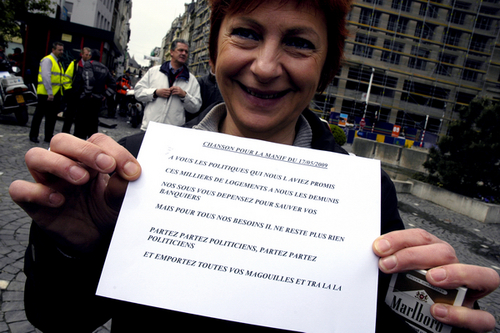 CHANSON POUR LA MANIE DU 17/05/2009
A VOUS LES POLITIQUES QUI NOUS L AVIEZ PROMIS
CES MILLIERS DE LOGEMENTS A NOUS LES DEMUNIS
NOS SOUS VOUS DEPENSEZ POUR SAUVER VOS
BANQUIERS
MAIS POUR TOUS NOS BESOINS IL NE RESTE PLUS RIEN
PARTEZ PARTEZ POLITICIENS, PARTEZ PARTEZ
POLITICIENS
ET EMPORTEZ TOUTES VOS MAGOUILLES ET TRA LA LA
Marlboro